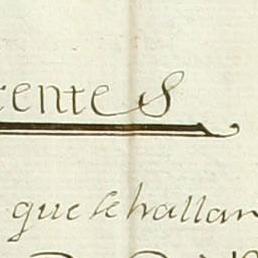 rentes
que se hallan